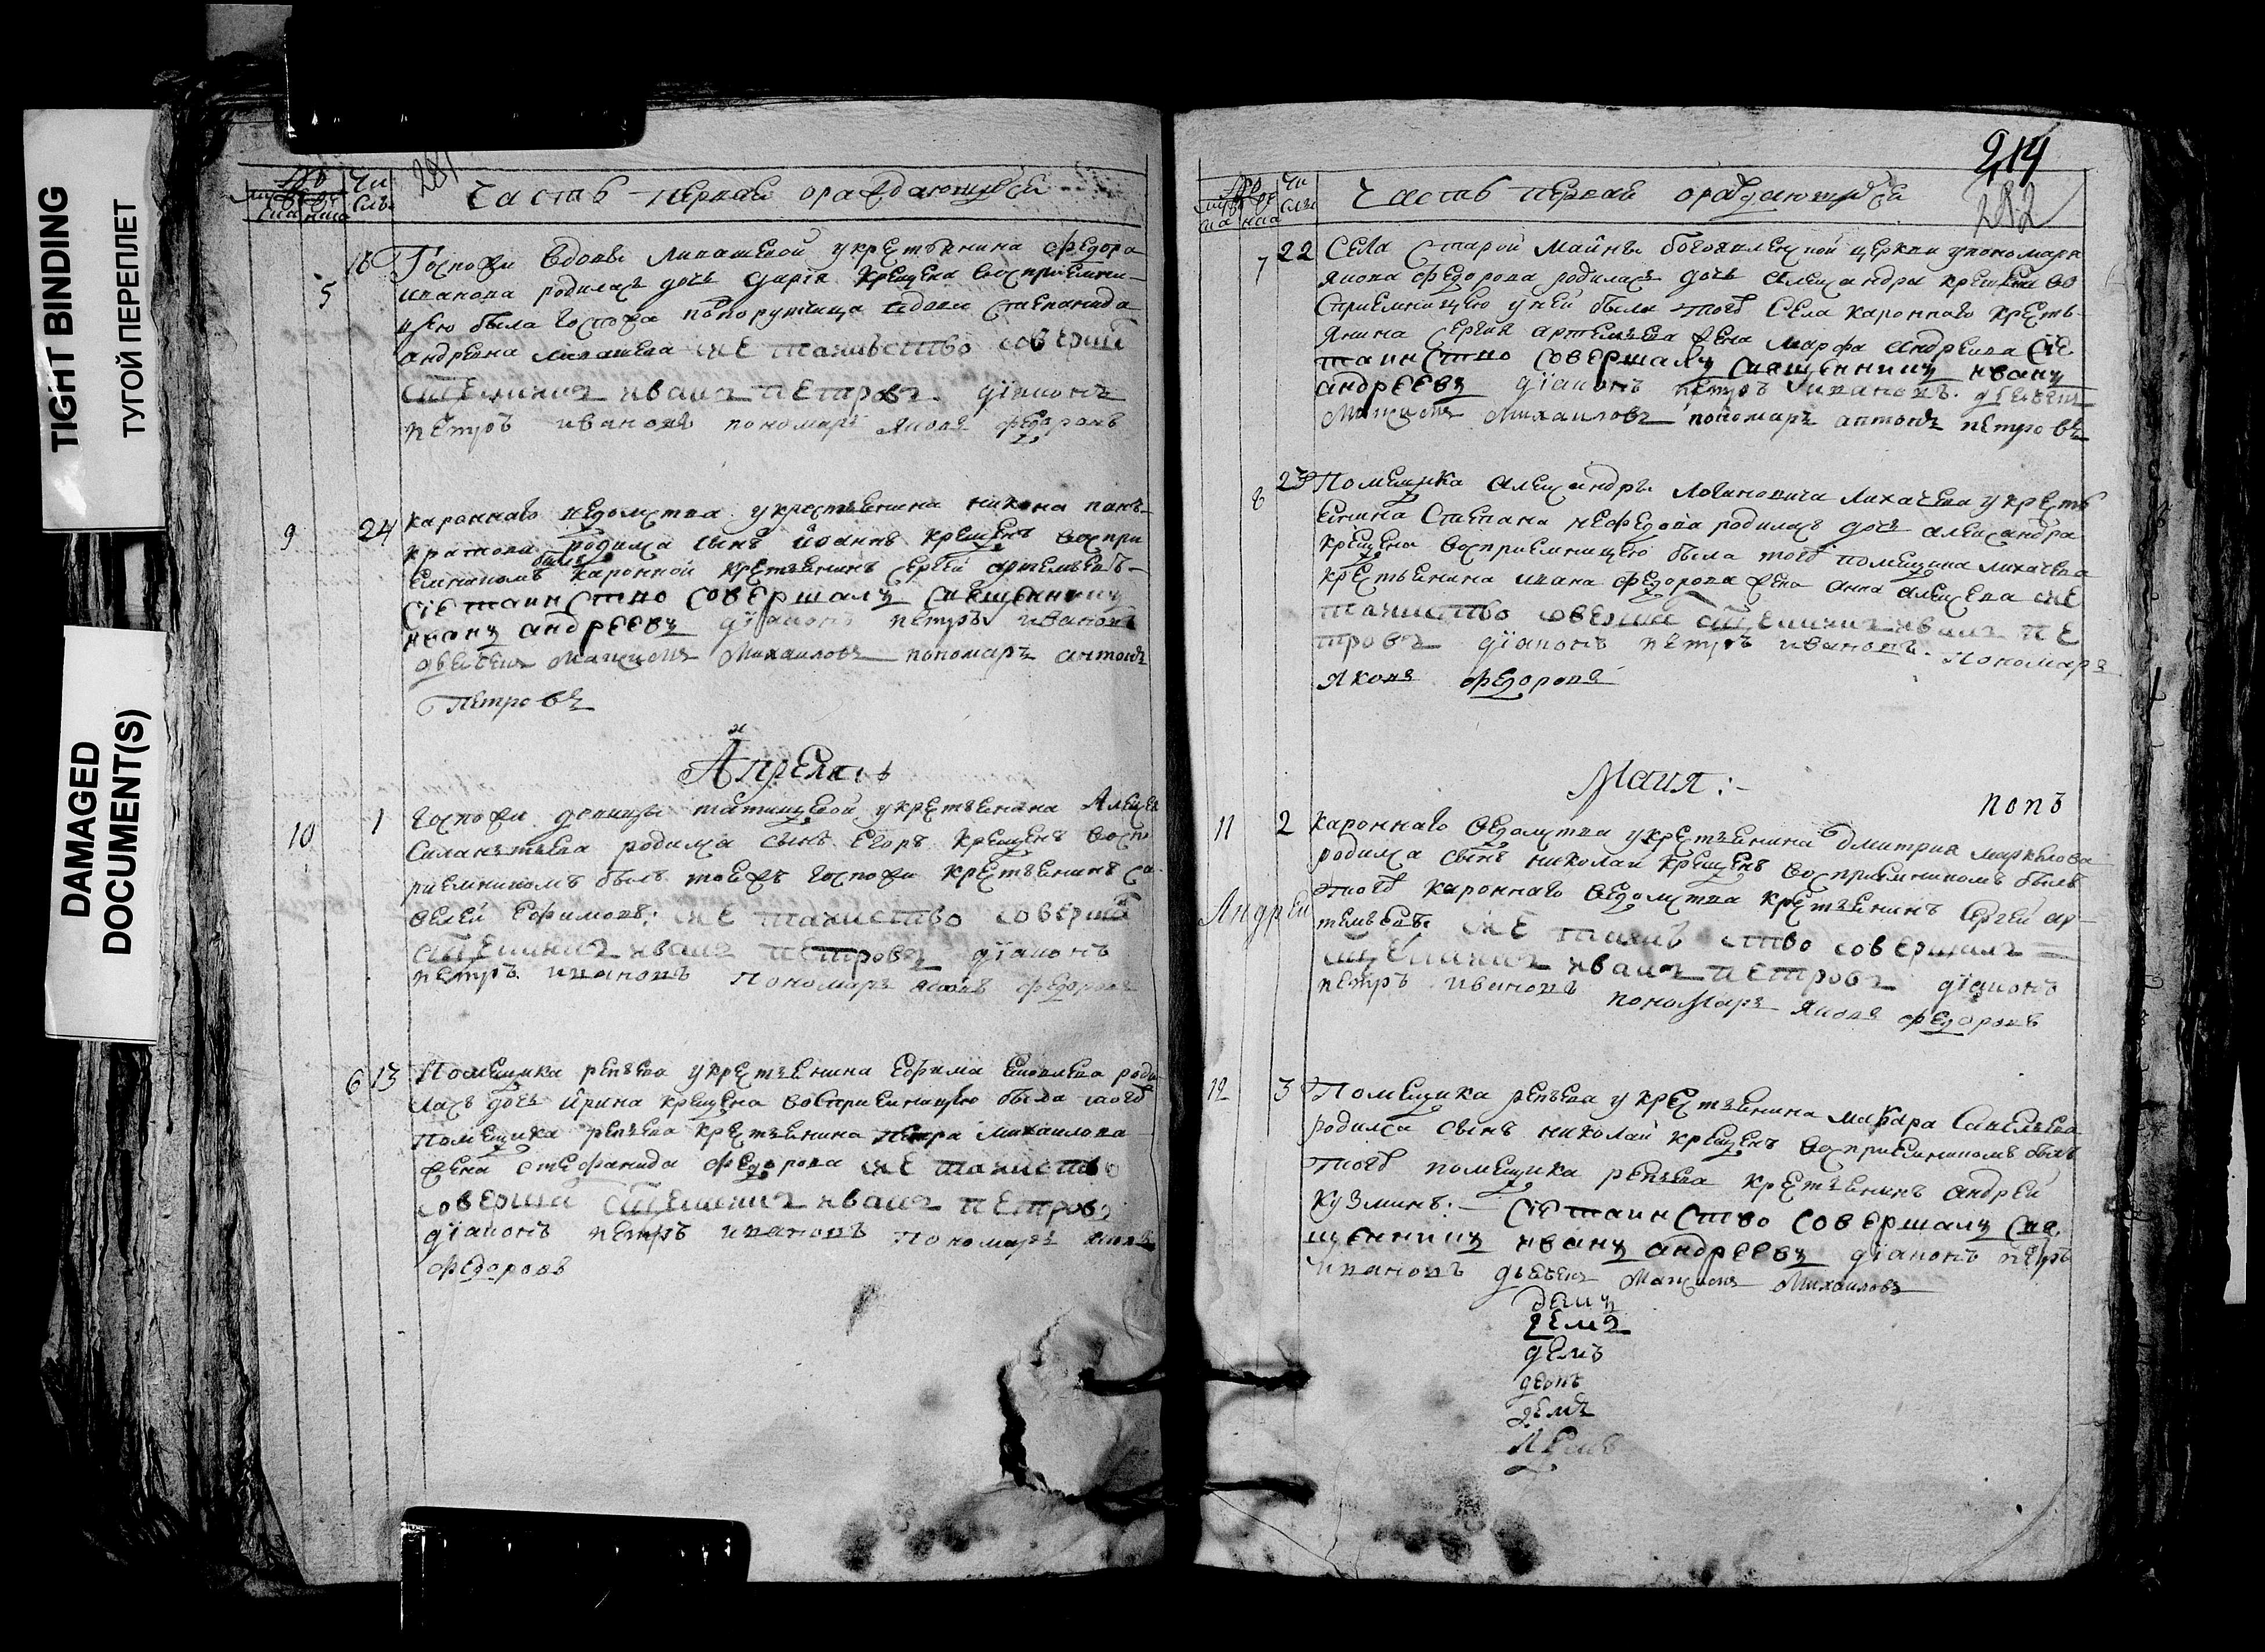 TIGHT BINDING
ТУГОЙ ПЕРЕПЛЕТ
DAMAGED
DOCUMENT(S)
281
Чи
сла
Часть первая о раждающихся
5 16 Госпожи вдовы Липашевой у крестьянина Федора
Иванова родилась дочь Дария крещена восприемни
цею была госпожа подпорутчица вдова Степанида
Андреева сие таинство совершил
священник иван петровъ диаконъ
петръ иванов пономарь яков федоровъ
9 24 каронного ведомства у крестьянина никона панъ
кратова родился сынъ иоаннъ крещенъ воспри
емником былъ каронной крестьянинъ сергей артемьевъ
сие таинство совершалъ священникъ
иванъ андреевъ диаконъ петръ ивановъ
дьячекъ Михаиловъ пономарь антонъ
Петровъ
Апреля
10 1 госпожи девицы татищевой у крестьянина Алексея
Силантьева родился сынъ Егоръ крещенъ воспри
риемникомъ былъ тоей госпожи крестьянинъ са
велей Ефимовъ: сие таинство совершил
священникъ иванъ петровъ диаконъ
петръ ивановъ Пономарь яковъ федоровъ
6 13 Помещика репьева у крестьянина Ефима роди
лась дочь ирина крещена восприемницею была того
помещика репьева крестьянина Петра михаилова
жена стефанида федорова сие таинство
соверши священникъ иванъ петровъ
диаконъ петръ ивановъ Пономарь яковъ
федоровъ
214
282
Чи
сла
Часть первая о раждающихся
7 22 Села Старой Майны богоявленской церкви у пономаря
якова федорова родилась дочь Александра крещена во
сприемницею у ней была того села каронного кресть
янина сергея артемьева жена марфа андреева сие
таинство совершалъ священникъ иванъ
андреевъ диаконъ петръ ивановъ дьячекъ
Михаиловъ пономарь антонъ петровъ
8 23 Помещика Александры Логиновича Лихачева у кресть
янина Степана нефедова родилась дочь александра
крещена восприемницею была того помещика лихачева
крестьянина ивана федорова жена анна алексеева сие
таинство соверши священникъ иванъ пе
тровъ диаконъ петръ ивановъ. Пономарь
Яковъ федоровъ
Маия:
попъ
11 2 каронного ведомства у крестьянина дмитрия маркелова
родился сынъ николаи крещенъ восприемникомъ былъ
того каронного ведомства крестьянинъ Сергей ар
Андрей
темьевъ сие таинъство совершилъ
священникъ иванъ петровъ диаконъ
петръ ивановъ пономарь яковъ федоровъ
12 3 Помещика репьева у крестьянина макара Савельева
родился сынъ николай крещенъ восприемникомъ былъ
того помещика репьева крестьянинъ андрей
кузминъ: сие таинство совершалъ свя
щенникъ иванъ андреевъ диаконъ петръ
ивановъ дьячекъ Михаиловъ